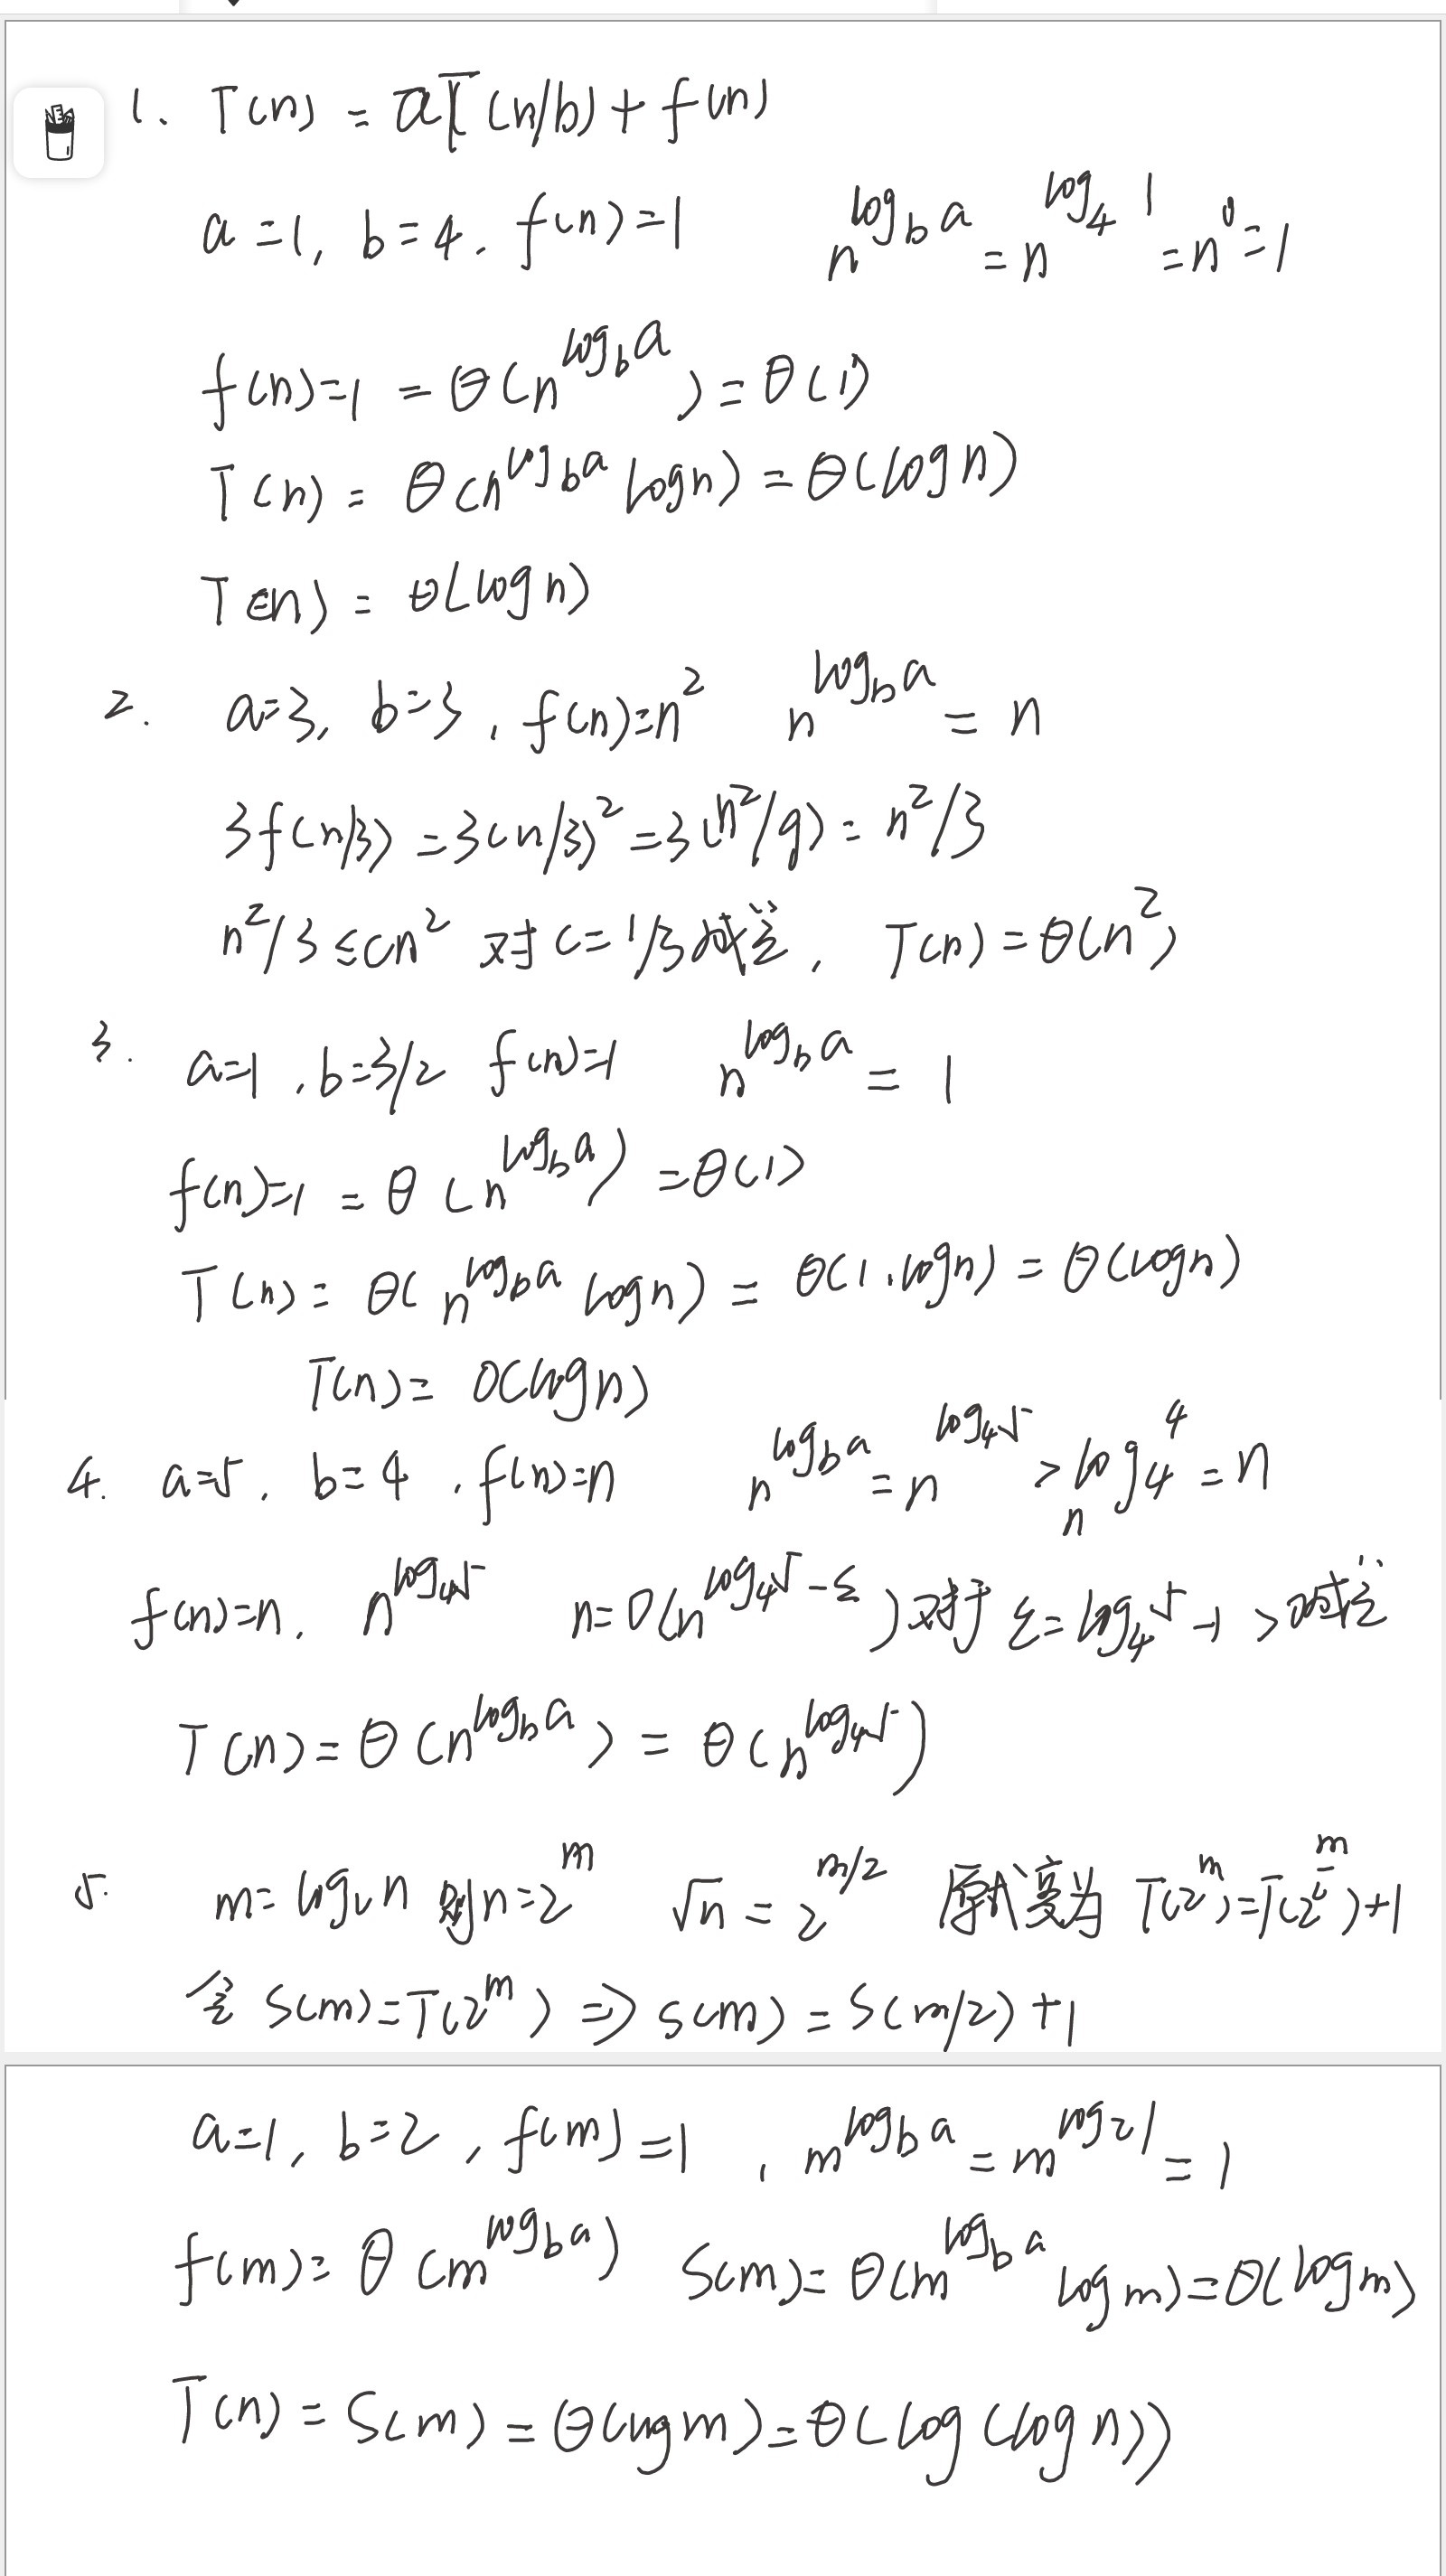 1. T(n) = aT(n/b) + f(n)
a=1, b=4, f(n)=1 n^{log_b a} = n^{log_4 1} = n^0 = 1
f(n)=1 = θ(n^{log_b a}) = θ(1)
T(n) = θ(n^{log_b a} log n) = θ(log n)
T(n) = θ(log n)
2. a=3, b=3, f(n)=n^2 n^{log_b a} = n
3f(n/3) = 3(n/3)^2 = 3(n^2/9) = n^2/3
n^2/3 ≤ cn^2 对于 c=1/3成立, T(n) = θ(n^2)
3. a=1, b=3/2 f(n)=1 n^{log_b a} = 1
f(n)=1 = θ(n^{log_b a}) = θ(1)
T(n) = θ(n^{log_b a} log n) = θ(1·log n) = θ(log n)
T(n) = O(log n)
4. a=5, b=4, f(n)=n n^{log_b a} = n^{log_4 5} > n^{log_4 4} = n
f(n)=n, n^{log_4 5} n=O(n^{log_4 5-ε})对于 ε=log_4 5-1>0成立
T(n) = θ(n^{log_b a}) = θ(n^{log_4 5})
5. m=log_2 n 则n=2^m √n = 2^{m/2} 原式变为 T(2^m)=T(2^{m/2})+1
令 S(m)=T(2^m) ⇒ S(m) = S(m/2)+1
a=1, b=2, f(m)=1, m^{log_b a} = m^{log_2 1} = 1
f(m) = θ(m^{log_b a}) S(m) = θ(m^{log_b a} log m) = θ(log m)
T(n) = S(m) = θ(log m) = θ(log(log n))